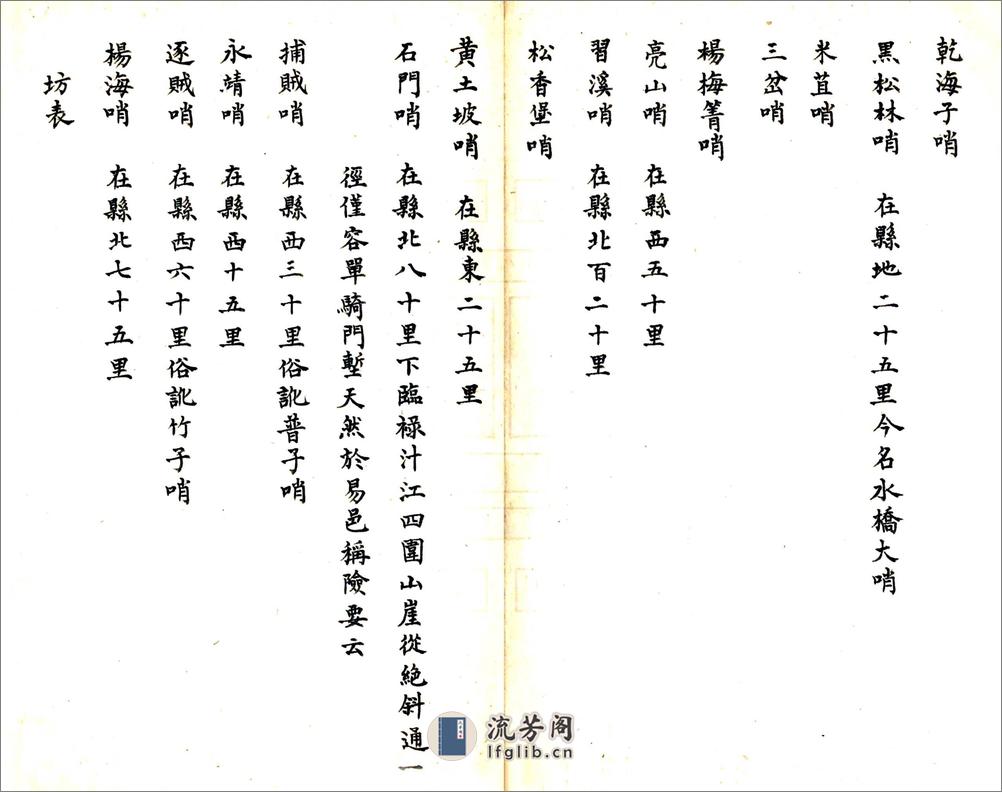 乾海子哨
黑松林哨　在縣地二十五里今名水橋大哨
米苴哨
三岔哨
楊梅箐哨
亮山哨　在縣西五十里
習溪哨　在縣北百二十里
松香堡哨
黄土坡哨　在縣東二十五里
石門哨　在縣北八十里下臨祿汁江四圍山崖從絶斜通一
徑僅容單騎門塹天然於易邑稱險要云
捕賊哨　在縣西三十里俗訛普子哨
永靖哨　在縣西十五里
逐賊哨　在縣西六十里俗訛竹子哨
楊海哨　在縣北七十五里
坊表
流芳阁
lfglib.cn